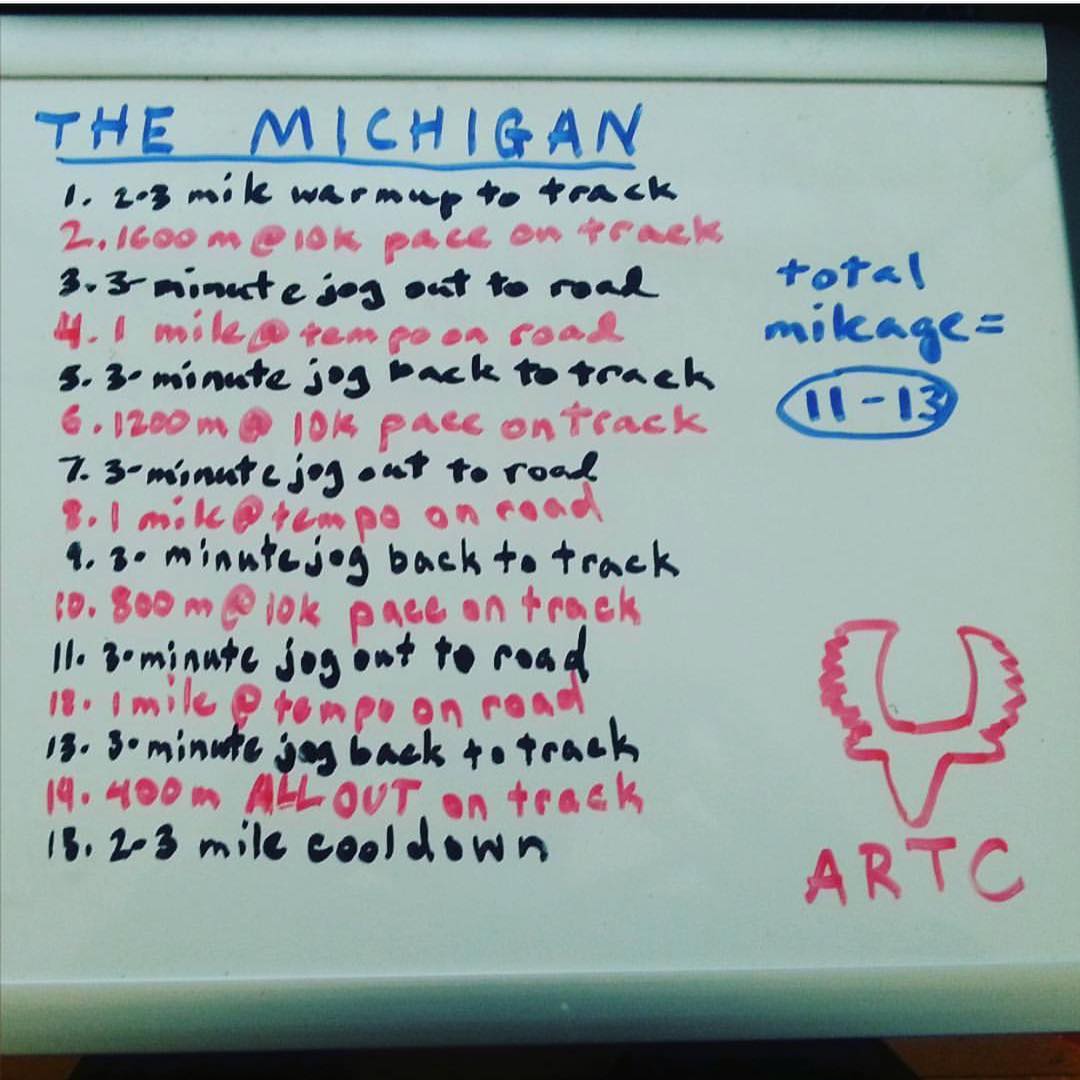 THE MICHIGAN
1. 2-3 mile warmup to track
2. 1600m @ 10k pace on track
3. 3-minute jog out to road
4. 1 mile @ tempo on road
5. 3-minute jog back to track
6. 1200m @ 10k pace on track
7. 3-minute jog out to road
8. 1 mile @ tempo on road
9. 3-minute jog back to track
10. 800m @ 10k pace on track
11. 3-minute jog out to road
12. 1 mile @ tempo on road
13. 3-minute jog back to track
14. 400m ALL OUT on track
15. 2-3 mile cooldown
total
mileage=
11-13
ARTC